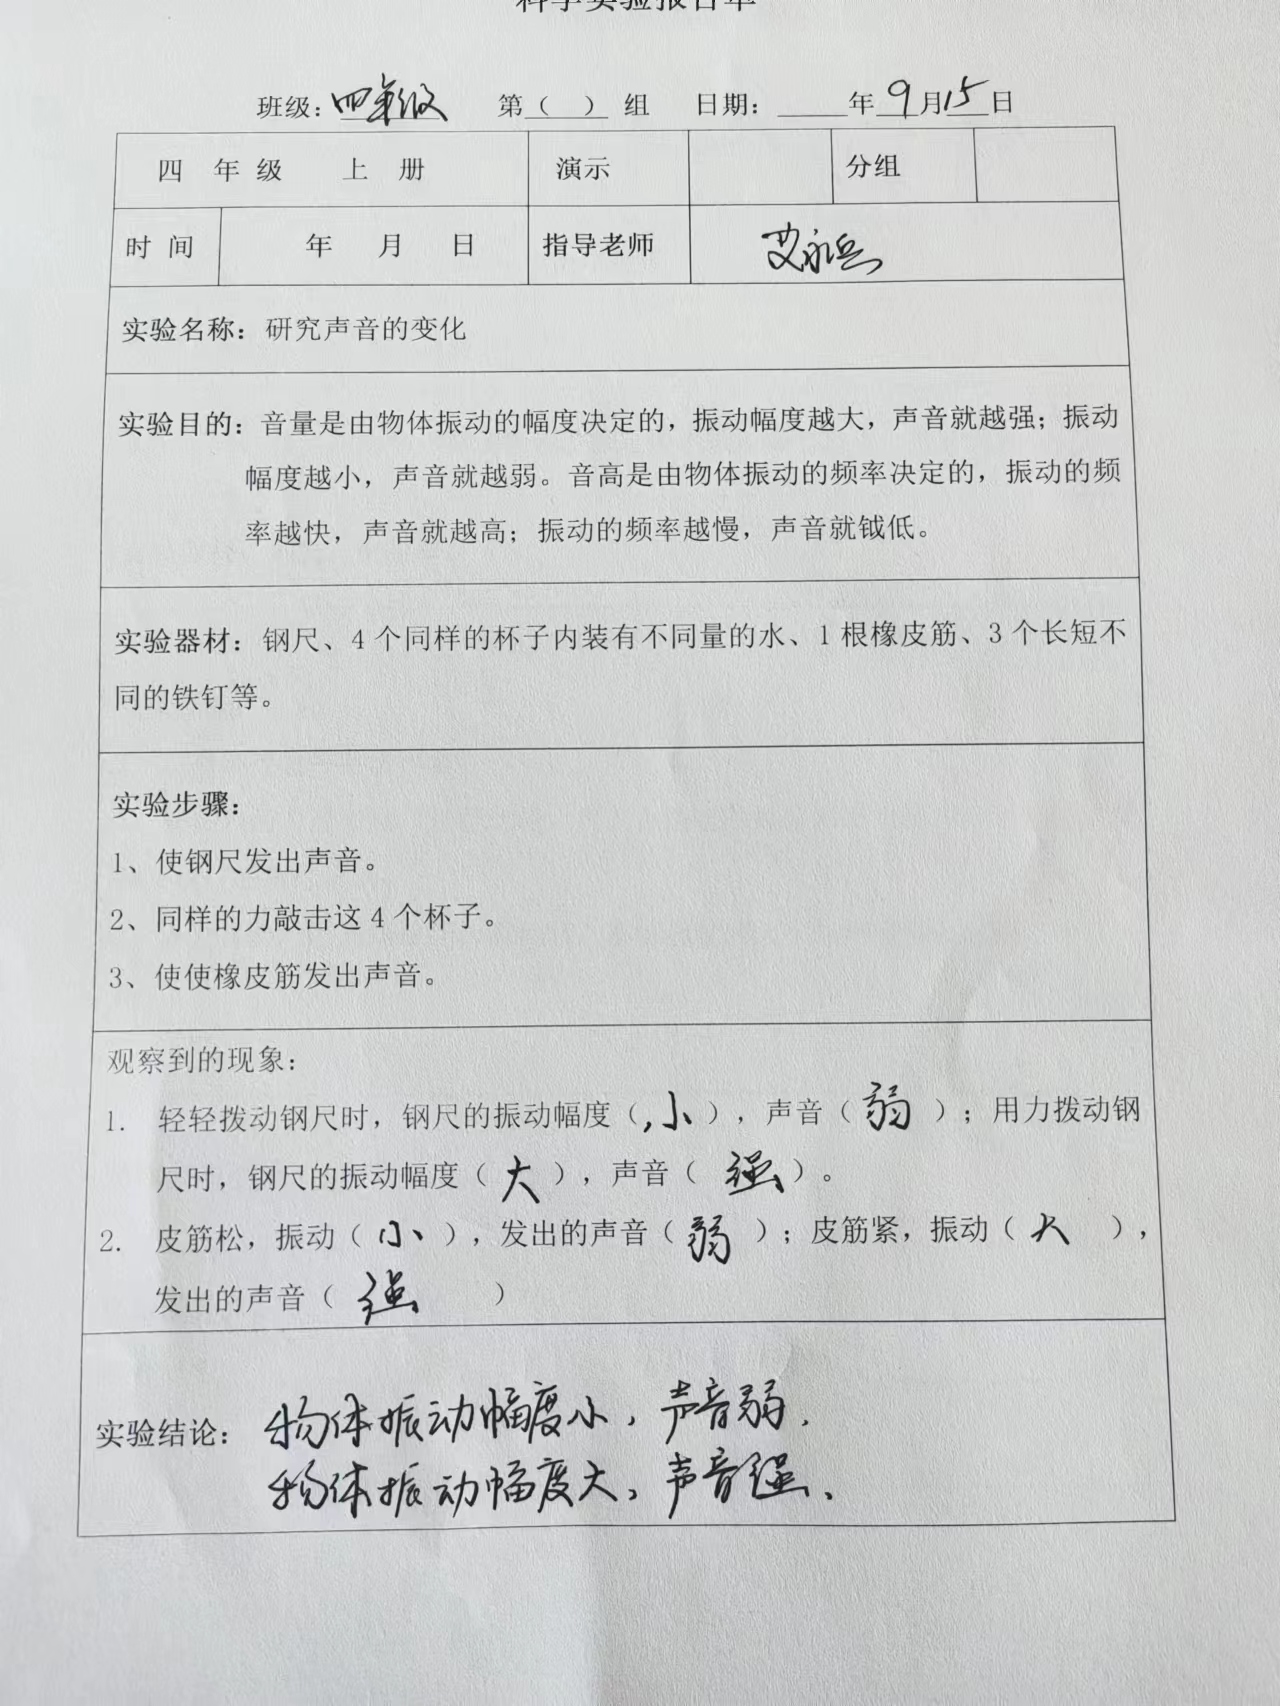 科学实验报告单
班级：四年级 第（ ）组 日期： 年9月15日
四 年 级 上 册 演示 分组
时 间 年 月 日 指导老师 艾永兵
实验名称：研究声音的变化
实验目的：音量是由物体振动的幅度决定的，振动幅度越大，声音就越强；振动
幅度越小，声音就越弱。音高是由物体振动的频率决定的，振动的频
率越快，声音就越高；振动的频率越慢，声音就钺低。
实验器材：钢尺、4个同样的杯子内装有不同量的水、1根橡皮筋、3个长短不
同的铁钉等。
实验步骤：
1、使钢尺发出声音。
2、同样的力敲击这4个杯子。
3、使使橡皮筋发出声音。
观察到的现象：
1. 轻轻拨动钢尺时，钢尺的振动幅度（小），声音（弱）；用力拨动钢
尺时，钢尺的振动幅度（大），声音（强）。
2. 皮筋松，振动（小），发出的声音（弱）；皮筋紧，振动（大），
发出的声音（强）
实验结论：物体振动幅度小，声音弱．
物体振动幅度大，声音强．